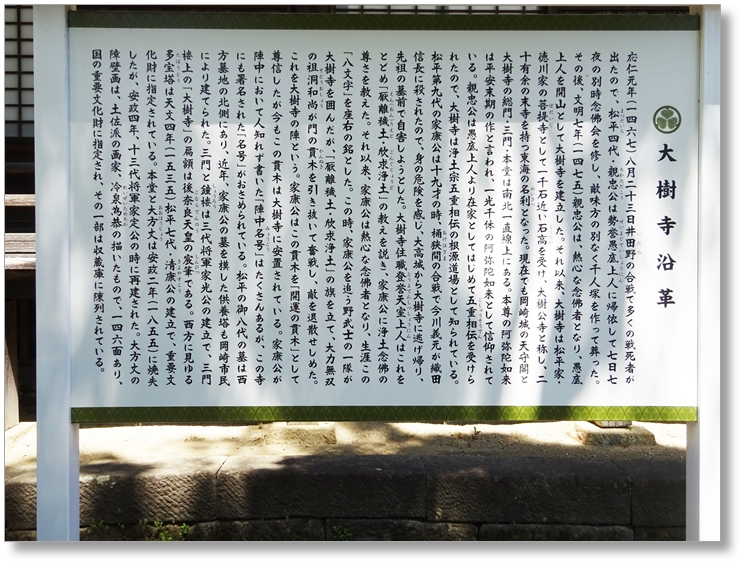 大樹寺沿革
応仁元年(一四六七)八月二十三日井田野の合戦で多くの戦死者が
出たので、松平四代・親忠公は勢誉愚底上人に帰依して七日七
夜の別時念仏会を修し、敵味方の別なく千人塚を作って葬った。
その後、文明七年(一四七五)親忠公は、熱心な念佛者となり、愚底
上人を開山として大樹寺を建立した。それ以来、大樹寺は松平家・
徳川家の菩提寺として一千石近い石高を受け、大樹公寺と称し、二
十有余の末寺を持つ東海の名刹となった。現在でも岡崎城の天守閣と
大樹寺の総門・三門・本堂は南北一直線上にある。本尊の阿弥陀如来
は平安末期の作と言われ、一光千体の阿弥陀如来として信仰されて
いる。親忠公は愚底上人より在家としてはじめて五重相伝を受けら
れたので、大樹寺は浄土宗五重相伝の根源道場として知られている。
松平第九代の家康公は十九才の時、桶狭間の合戦で今川義元が織田
信長に殺されたので、身の危険を感じ、大高城から大樹寺に逃げ帰り、
先祖の墓前で自害しようとした。大樹寺住職登誉天室上人はこれを
とどめ「厭離穢土・欣求浄土」の教えを説き、家康公に浄土念佛の
尊さを教えた。それ以来、家康公は熱心な念佛者となり、生涯この
「八文字」を座右の銘とした。この時、家康公を追う野武士の一隊が
大樹寺を囲んだが、「厭離穢土・欣求浄土」の旗を立て、大力無双
の祖洞和尚が門の貫木を引き抜いて奮戦し、敵を退散せしめた。
これを大樹寺の陣という。家康公はこの貫木を「開運の貫木」として
尊信したが今もこの貫木は大樹寺に安置されている。家康公が
陣中において人知れず書いた「陣中名号」はたくさんあるが、この寺
にも署名された「名号」がおさめられている。松平の御八代の墓は西
方墓地の北側にあり、近年、家康公の墓を模した供養塔も岡崎市民
により建てられた。三門と鐘楼は三代将軍家光公の建立で、三門
楼上の「大樹寺」の扁額は後奈良天皇の宸筆である。西方に見ゆる
多宝塔は天文四年(一五三五)松平七代 清康公の建立で、重要文
化財に指定されている。本堂と大方丈は安政二年(一八五五)に焼失
したが、安政四年、十三代将軍家定公の時に再建された。大方丈の
障壁画は、土佐派の画家、冷泉為恭の描いたもので、一四六面あり、
国の重要文化財に指定され、その一部は収蔵庫に陳列されている。